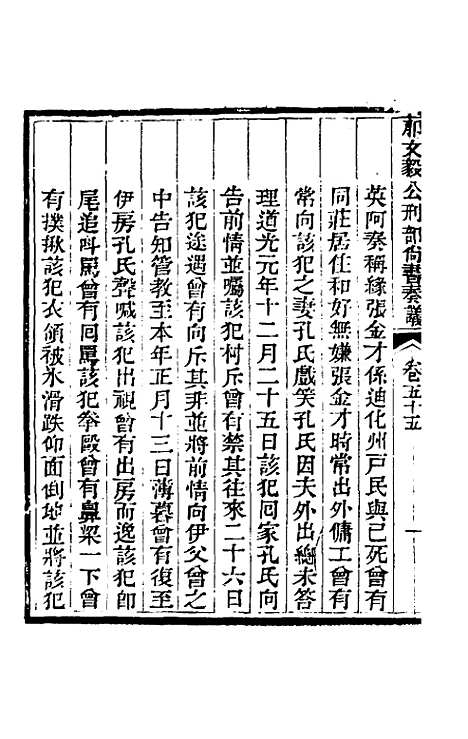 那文毅公刑部尚書奏議
卷五十五
一
英阿奏稱緣張金才係迪化州戸民與已死曾有
同莊居住和好無嫌張金才時常出外傭工曾有
常向該犯之妻孔氏戲笑孔氏因夫外出總未答
理道光元年十二月二十五日該犯回家孔氏向
告前情並囑該犯村斥曾有禁其往來二十六日
該犯途遇曾有向斥其非並將前情向伊父曾之
中告知管教至本年正月十三日薄暮曾有復至
伊房孔氏聲喊該犯出視曾有出房而逸該犯卽
尾追呌駡曾有回駡該犯拳毆曾有鼻梁一下曾
有撲揪該犯衣領被氷滑跌仰面倒地並將該犯